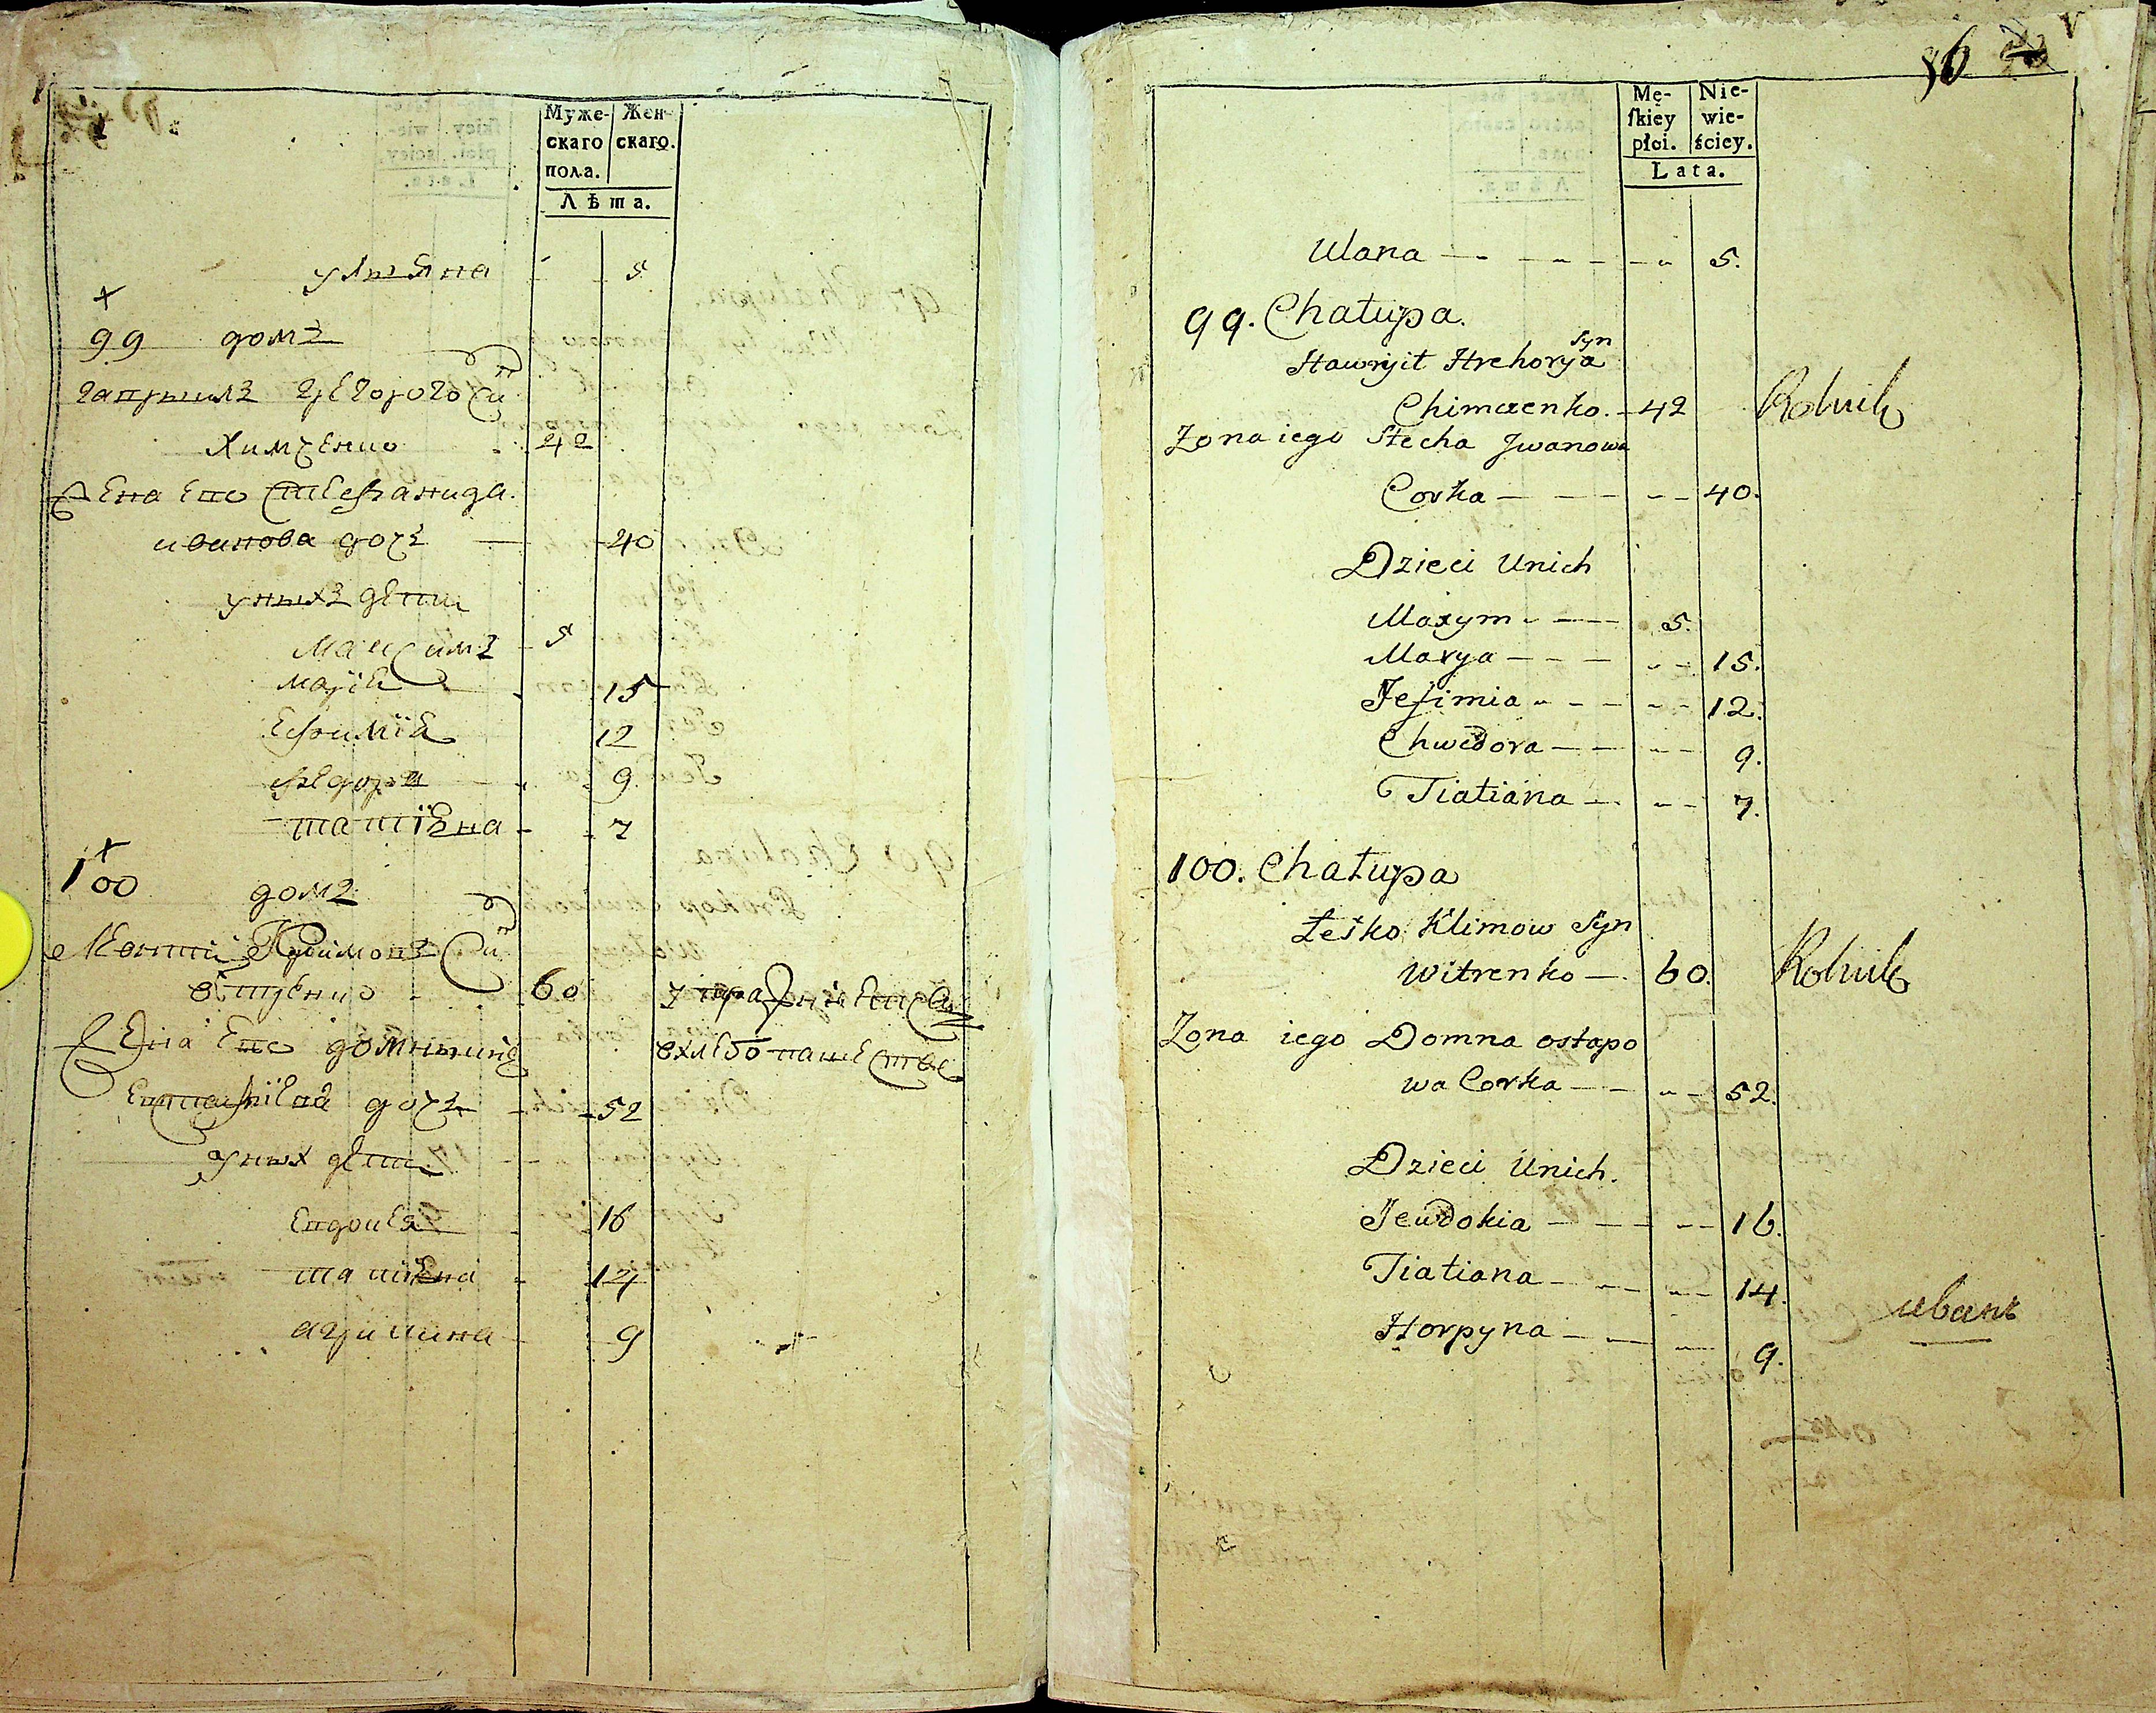 Муже-
скаго
пола.
Жен-
скаго.
Лѣта.
ульяна 5
99 домъ
гаврилъ григоровъ сн
Химченко 42
жена его стефанида
иванова дочь 40
унихъ дети
максимъ 5
марiя 15
ефимiя 12
федора 9
татiена 7
100 домъ
Климовъ сн
витренко 60
жена его домникия
дочь 52
унихъ дети
евдокея 16
татiена 14
агрипина 9
упражняется
вхлебопашестве
96
Mę-
ſkiey
płci.
Nie-
wie-
ściey.
Lata.
Ulana 5.
99. Chałupa.
Hawryił Hrehorya Syn
Chimczenko. 42 Rolnik
Zona iego Stecha Jwanowa
Corka 40.
Dzieci Unich
Maxym 5.
Marya 15.
Jefimia 12.
Chwedora 9.
Tiatiana 7.
100. Chałupa
Leśko Klimow Syn
Witrenko 60. Rolnik
Zona iego Domna ostapo
wa Corka 52.
Dzieci Unich.
Jewdokia 16.
Tiatiana 14.
Horpyna 9.
иванъ